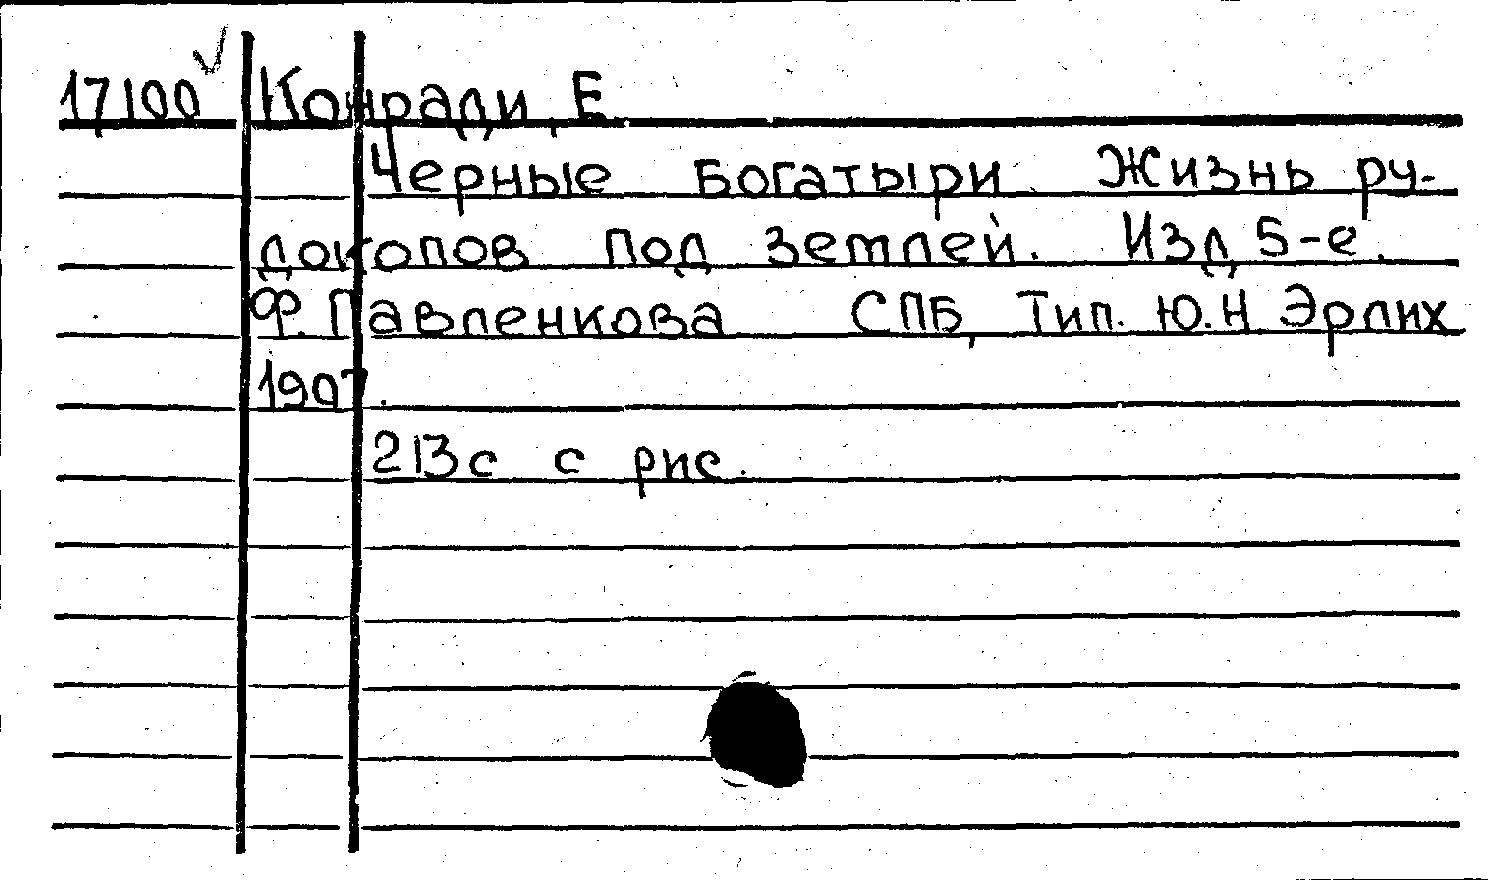 17100 Конради, Е.
Черные Богатыри. Жизнь ру-
докопов под землей. Изд 5-е.
Ф. Павленкова СПБ, Тип. Ю.Н Эрлих
1907.
213с с рис.